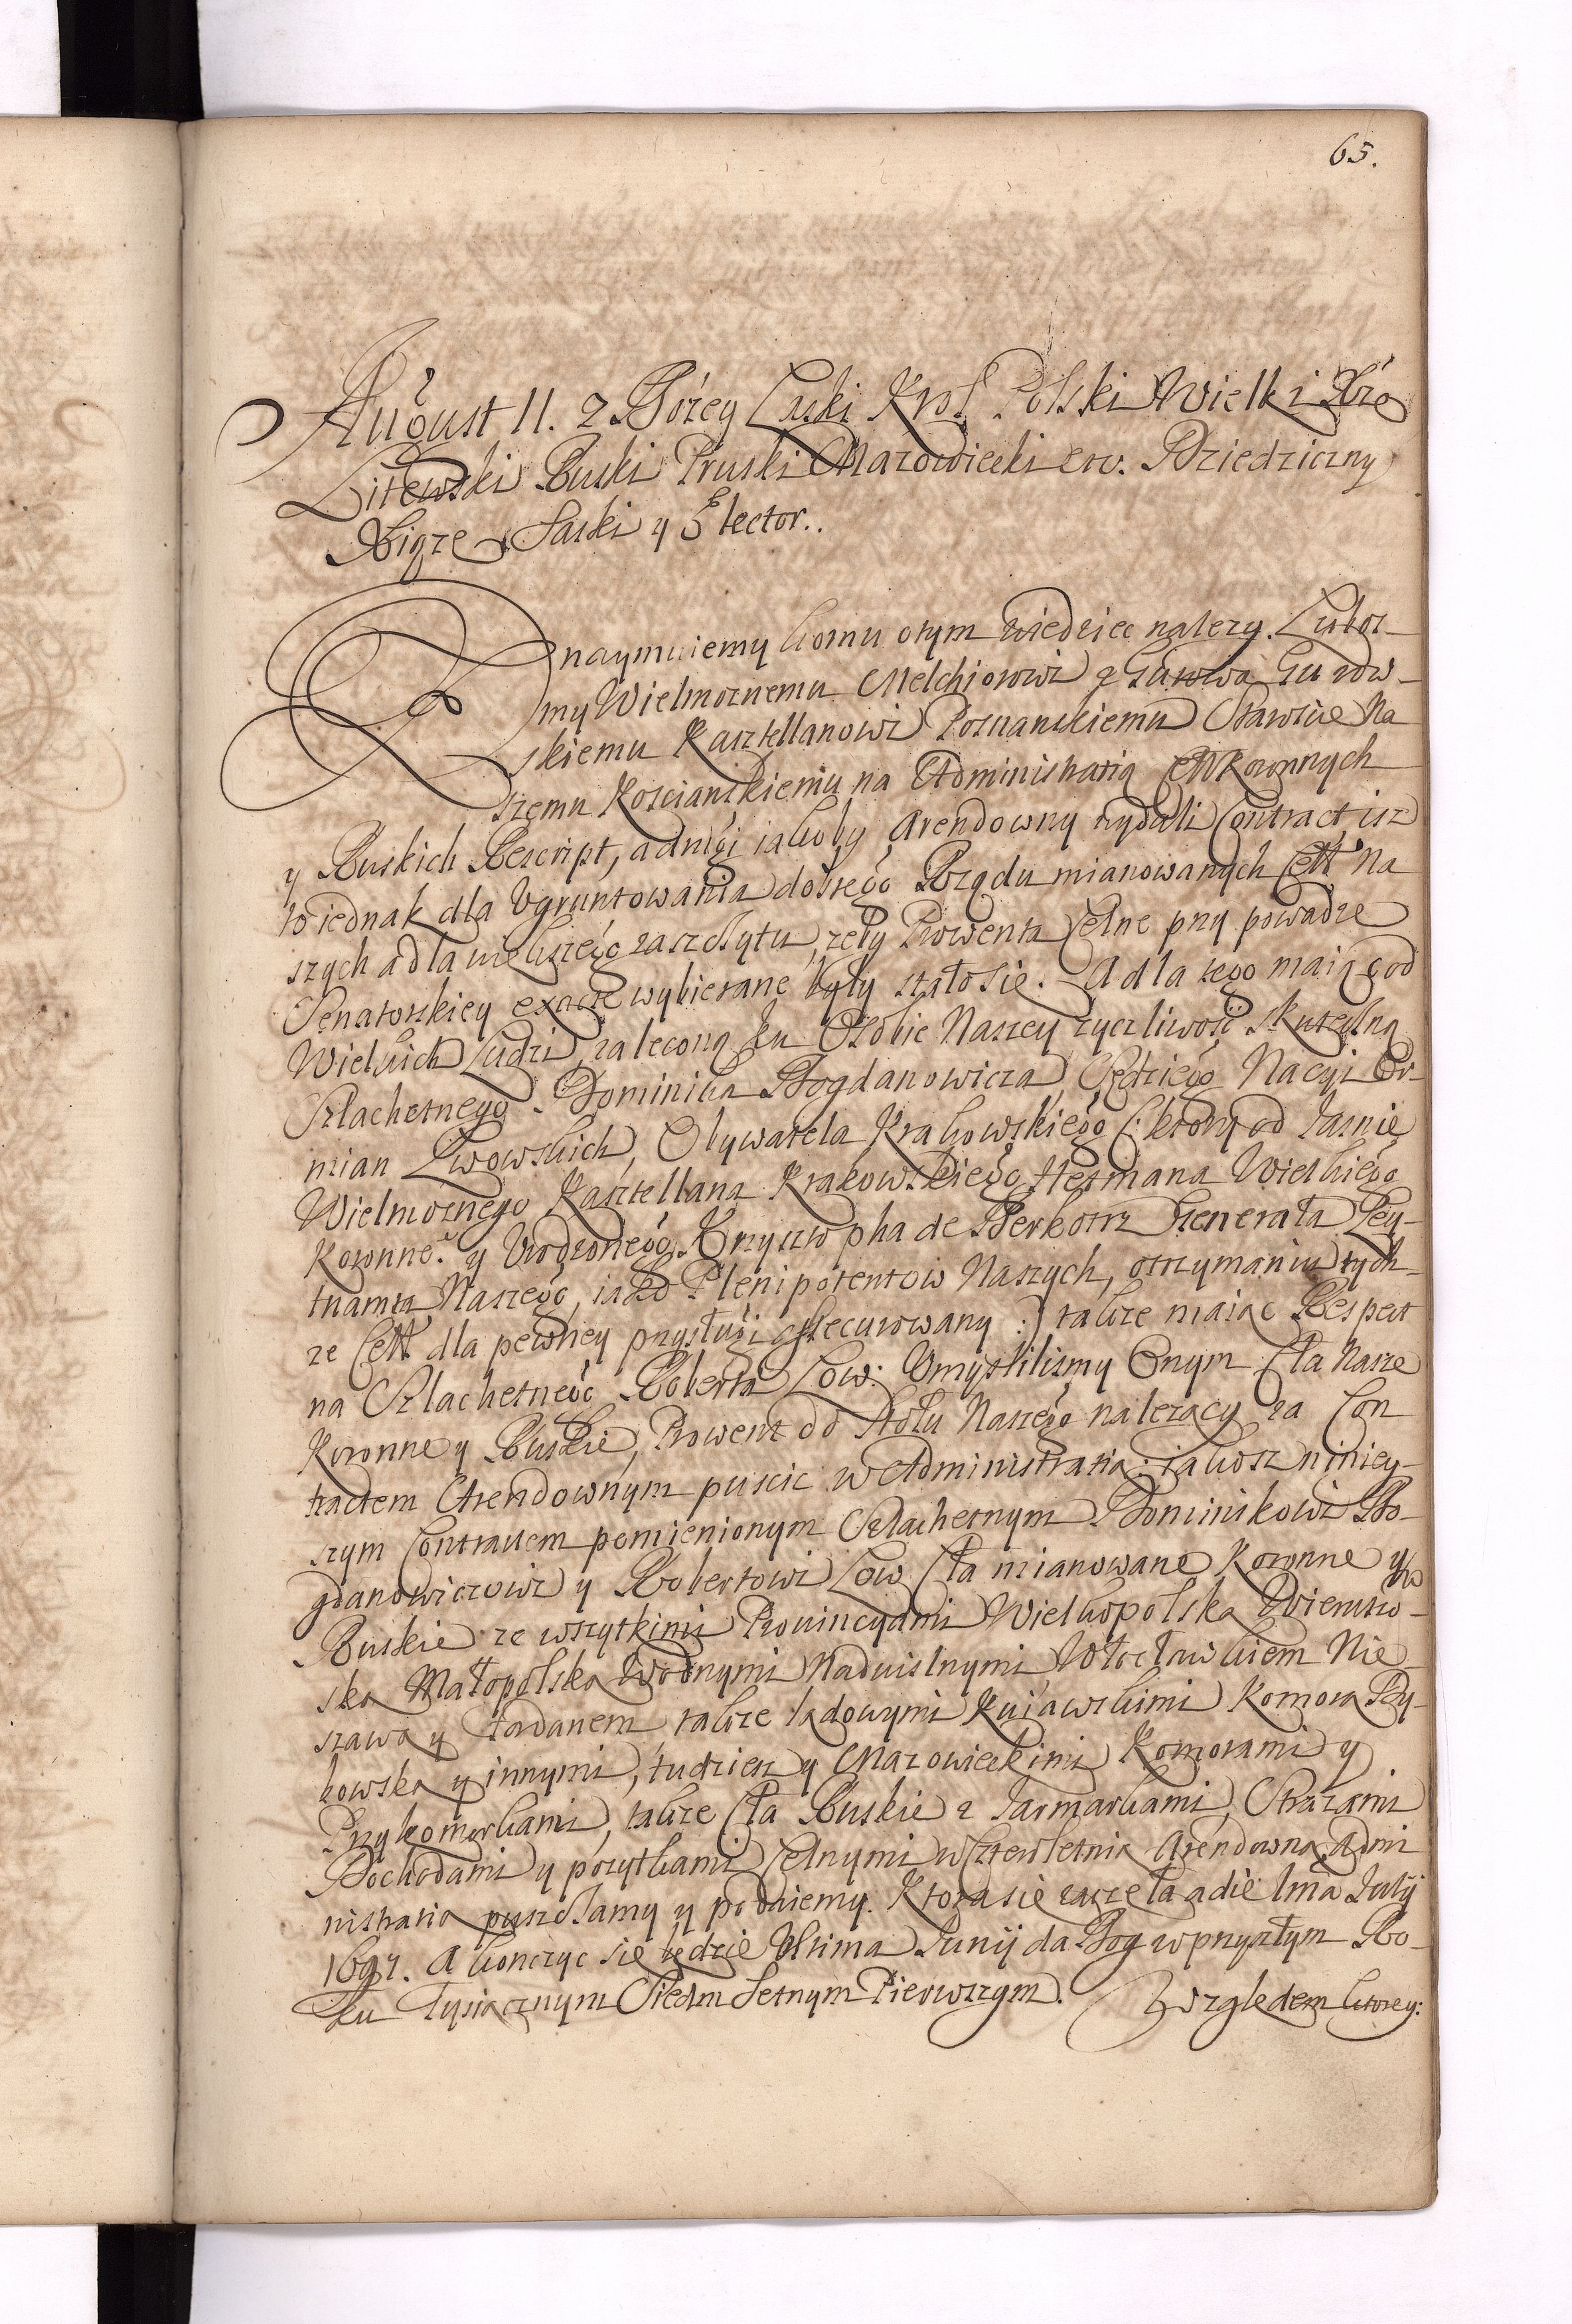 65.
August II. z Bożey Łaski Krol Polski Wielki Xże
Litewski Ruski Pruski Mazowiecki etc. Dziedziczny
Xiąże Saski y Elector.
Znaymuiemy komu otym wiedziec nalezy. Lubos-
my Wielmoznemu Melchiorowi z Gurowa Gurow-
skiemu Kasztellanowi Poznanskiemu Starscie Na
szemu Koscianskiemu na Administratią Cełł Koronnych
y Ruskich Rescript, a drugi iakoby Arendowny wydali Contract, isz
to iednak dla Ugruntowania dobrego Rządu mianowanych Cełł Na
szych a dla wiekszego zaszczytu, zeby Prowenta Celne przy powadze
Senatorskiey exacte wybierane były stało sie. A dla tego maiąc od
Wielkich Ludzi, zaleconą ku Osobie Naszey zyczliwosc skuteczną
Szlachetnego Dominika Bogdanowicza Sędziego Nacyi Or-
mian Lwowskich, Obywatela Krakowskiego (: ktory od Jasnie
Wielmoznego Kasztellana Krakowskiego Hetmana Wielkiego
Koronne° y Urodzonego Krzysztopha de Berkotz Generała Ley-
tnamta Naszego, iako Plenipotentow Naszych, otrzymaniu tych-
ze Cełł dla pewney przysługi assecurowany :) takze maiąc Respect
na Szlachetnego Roberta Low: Umyslilismy Onym Cła Nasze
Koronne y Ruskie, Prowent do Stołu Naszego nalezący za Con
tractem Arendownym puscic w Administratią: iakosz niniey-
szym Contractem pomienionym Szlachetnym Dominikowi Bo-
gdanowiczowi y Robertowi Low Cła mianowane Koronne y
Ruskie ze wszytkimi Prouincyami Wielkopolską Wieruszo-
ską Małopolską Wodnymi Nadwislnymi Włocławkiem Nie
szawą y Fordanem, takze lądowymi Kuiawskimi Komorą By-
kowską y innymi, tudziesz y Mazowieckimi Komorami y
Przykomorkami, takze Cła Ruskie z Jarmarkami, Strazami
Dochodami y pozytkami Celnymi w Czteroletnią Arendowną Admi
nistratią puszczamy y podaiemy. Ktora sie zaczęła a die 1ma Julij
1697. A konczyc się będzie Ultima Junij da Bog w przyszłym Ro-
ku Tysiącznym Siedm Setnym Pierwszym. Względem ktorey: